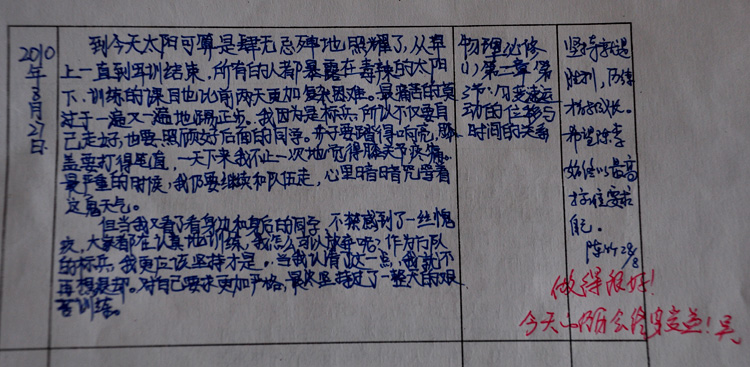 2010年8月27日
到今天太阳可算是肆无忌惮地照耀了，从早
上一直到军训结束，所有的人都暴露在毒辣的太阳
下，训练的课目也比前两天更加复杂困难。最痛苦的莫
过于一遍又一遍地踢正步。我因为是标兵，所以不仅要自
己走好，也要照顾好后面的同学。步子要踏得响亮，膝
盖要打得笔直，一天下来我不止一次地觉得膝关节疼痛。
最严重的时候，我仍要继续和队伍走，心里暗暗咒骂着
这鬼天气。
但当我又看了看身边和身后的同学，不禁感到了一丝愧
疚，大家都在认真地训练，我怎么可以放弃呢？作为方队
的标兵，我更应该坚持才是。当我认清了这一点，我就不
再想退却。对自己要求更加严格，最终坚持过了一整天的艰
苦训练。
物理必修
(1)第二章第
2节：匀变速运
动的位移与
时间的关系
坚持就是
胜利，历练
才能成长。
希望陈李
始终以最高
标准要求
自己。
28/8
做得很好！
今天的历会终身受益！吴